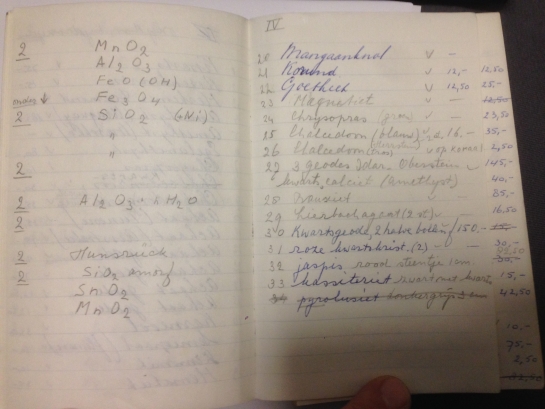 2 MnO2
Al2O3
2 FeO(OH)
Fe3O4
2 SiO2 (Ni)
"
"
2
2 Al2O3 . x H2O
2
2 Hunsrück
2 SiO2 amorf
SnO2
MnO2
IV
20 Mangaanknol v -
21 Korund v 12,- 12,50
22 Goethiet v 12,50 25,-
23 Magnetiet v -
24 Chrysopras v - 23,50
25 Chalcedoon (blauw) v 2, 16.- 35,-
26 Chalcedoon v 2,50
27 3 geodes Idar-Oberstein v 145,-
kwarts, calciet (amethyst) 40,-
28 Bauxiet v - 85,-
29 agaat (2 st) v - 16,50
30 Kwartsgeode, 2 halve bollen f 150.-
31 roze kwartskrist. (2) - 30,-
32 jaspis, rood steentje 1 cm
33 kassiteriet kwarts 15,-
34 pyrolusiet 3 cm 42,50
10,-
75,-
2,50